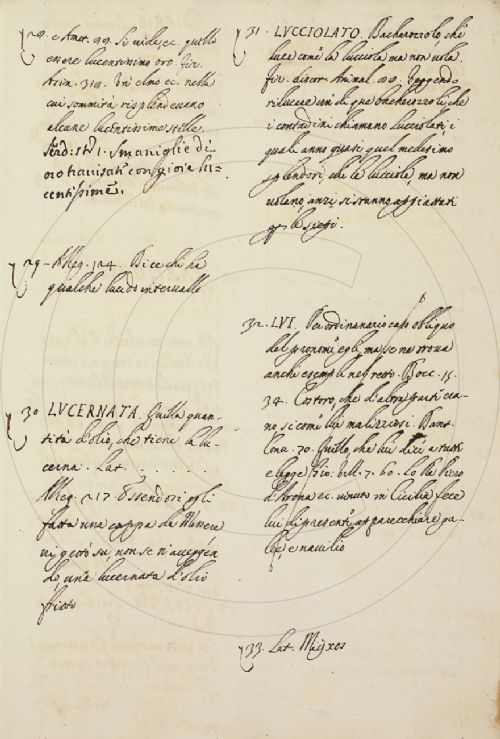 28. e Amet. 99. Si vide ec. quello
essere lucentissimo oro. Fir.
Asin. 319. In elmo ec. nella
cui sommità risplendevano
alcune lucentissime stelle.
Smaniglie di
centissime.
29 - Alleg. 124. Dice chi ha
qualche lucido intervallo
30 LUCERNATA. Quella quan-
tità d'olio, che tiene la lu-
cerna. Lat. . . . . . . .
Alleg. 217. Essendosi egli
fatta una cappa da
vi gettò su, non se n'accorgen
do, una lucernata d'olio
31. LUCCIOLATO. Bacherozzolo, che
luce come la lucciola ma non vola.
Fir. discor. Animal. Veggendo
rilucere un di que' bacherozzoli, che
i contadini chiamano lucciolati, i
quali anno quasi quel medesimo
splendore, che le lucciole, ma non
volano, anzi si stanno appiattati
per le siepi.
32. LUI. Per ordinario caso obliquo
del pronome egli, ma se ne trova
anche esempi nel retto. Bocc. 15.
34. Costoro, che d'altra parte era-
no, si come lui, maliziosi. Dant.
Conv. 70. Quello, che lui dice a tutti
e legge.
d'Arona ec. venuto in Cicilia fece
lui di presente apparecchiare ga-
lee, e navilio
33. Lat.